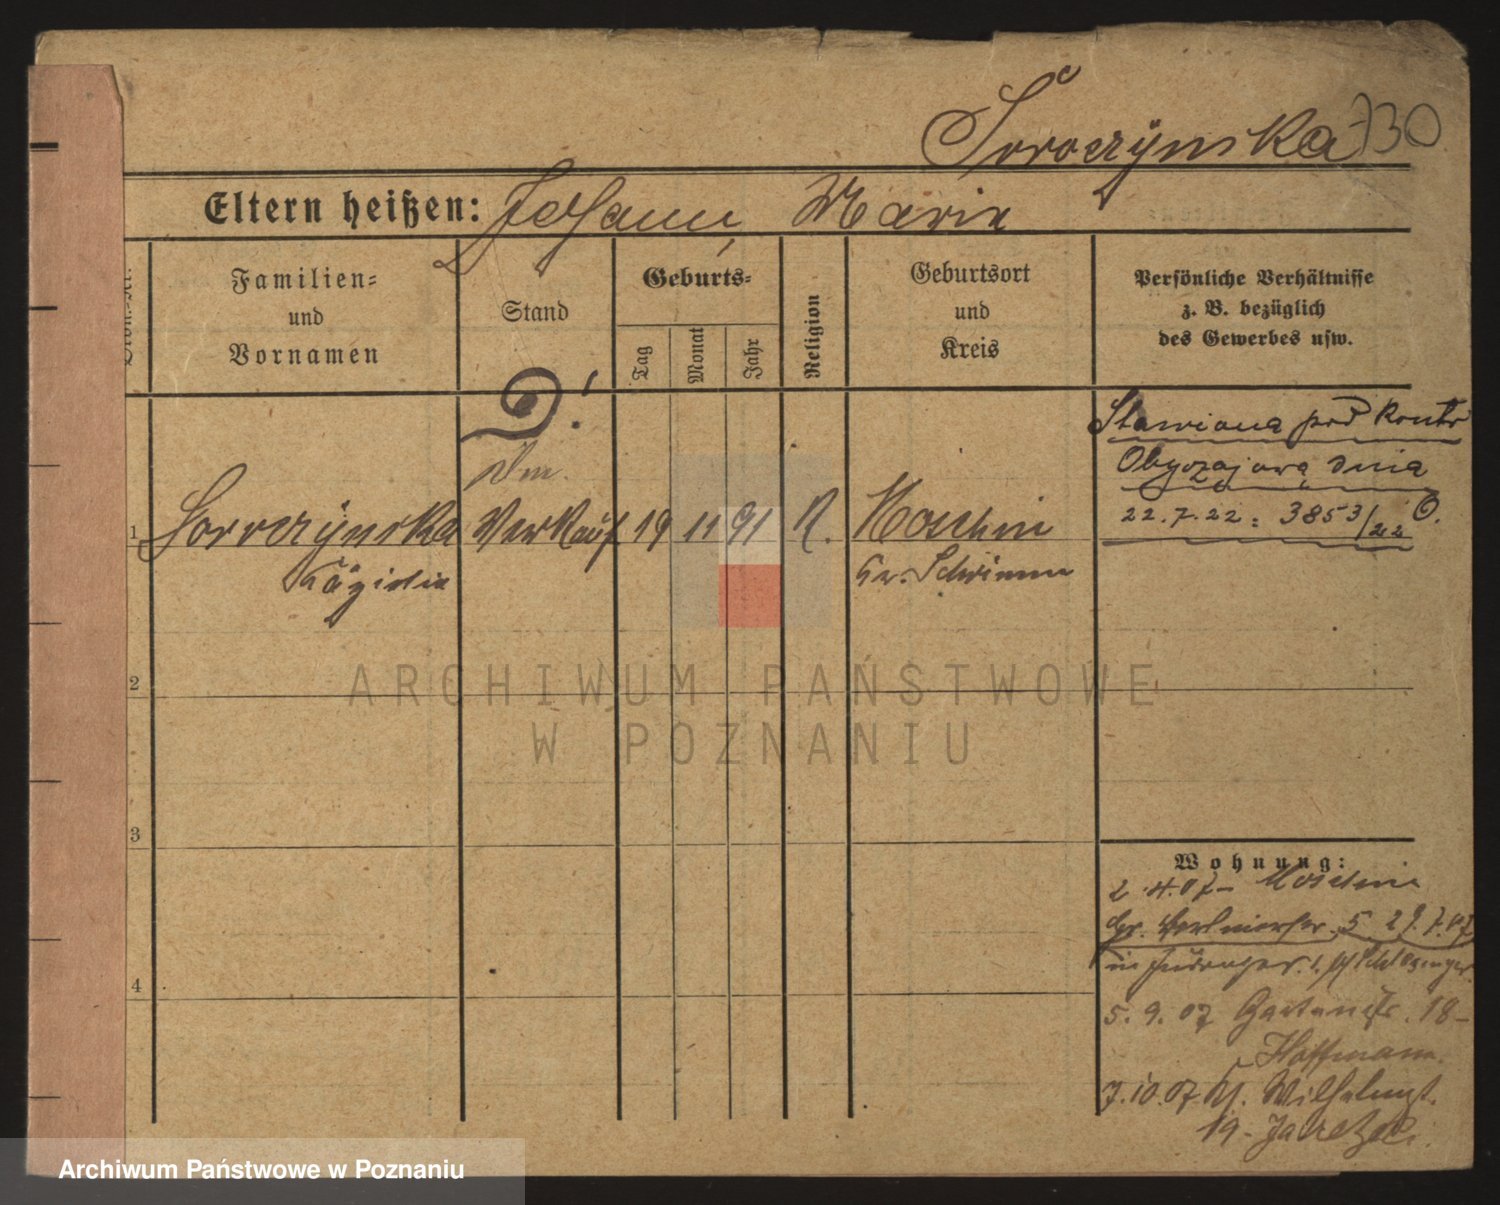 Soroczynska 730
Eltern heißen: Johann, Marie
Familien-
und
Vornamen
Stand
Geburts-
Tag
Monat
Jahr
Religion
Geburtsort
und
Kreis
Persönliche Verhältnisse
z. B. bezüglich
des Gewerbes usw.
Stawiona pod Kontr
Obyczajową dnia
22.7.22: 3853/22
1 Soroczynska Verkäuf 19 11 91 K. Moschin
Kr. Schrimm
2
3
4
Wohnung:
2.4.07 - Moschin
5 29.7.07
5.9.07 Gartenstr. 18 -
Hoffmann.
7.10.07 Wilhelmst.
19 -
ARCHIWUM PAŃSTWOWE
W POZNANIU
Archiwum Państwowe w Poznaniu